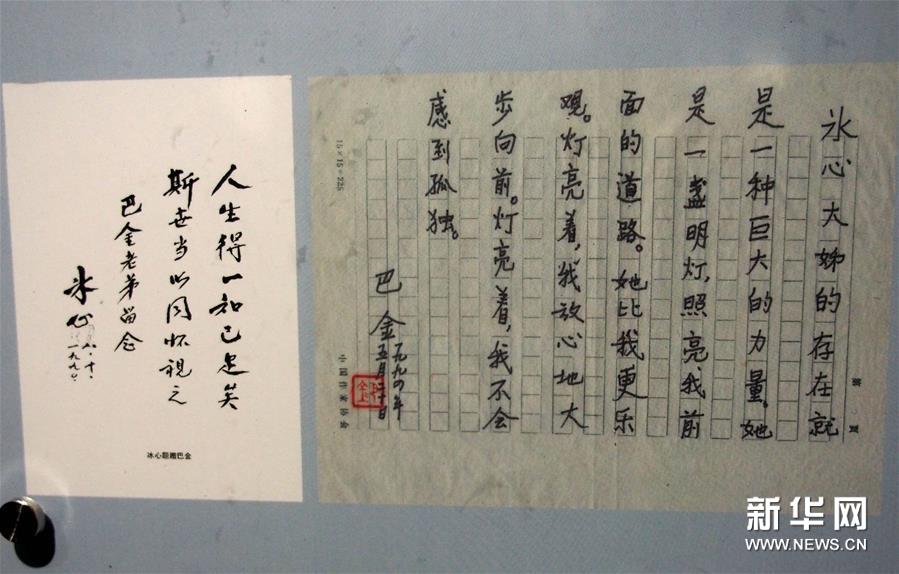 人生得一知己足矣
斯世当以同怀視之
巴金老弟留念
冰心
冰心题赠巴金
第 页
冰心大姊的存在就
是一种巨大的力量。她
是一盏明灯，照亮我前
面的道路。她比我更乐
观。灯亮着，我放心地大
步向前。灯亮着，我不会
感到孤独。
巴金
一九九四年
五月二十日
15×15=225
中国作家协会
新华网
WWW.NEWS.CN